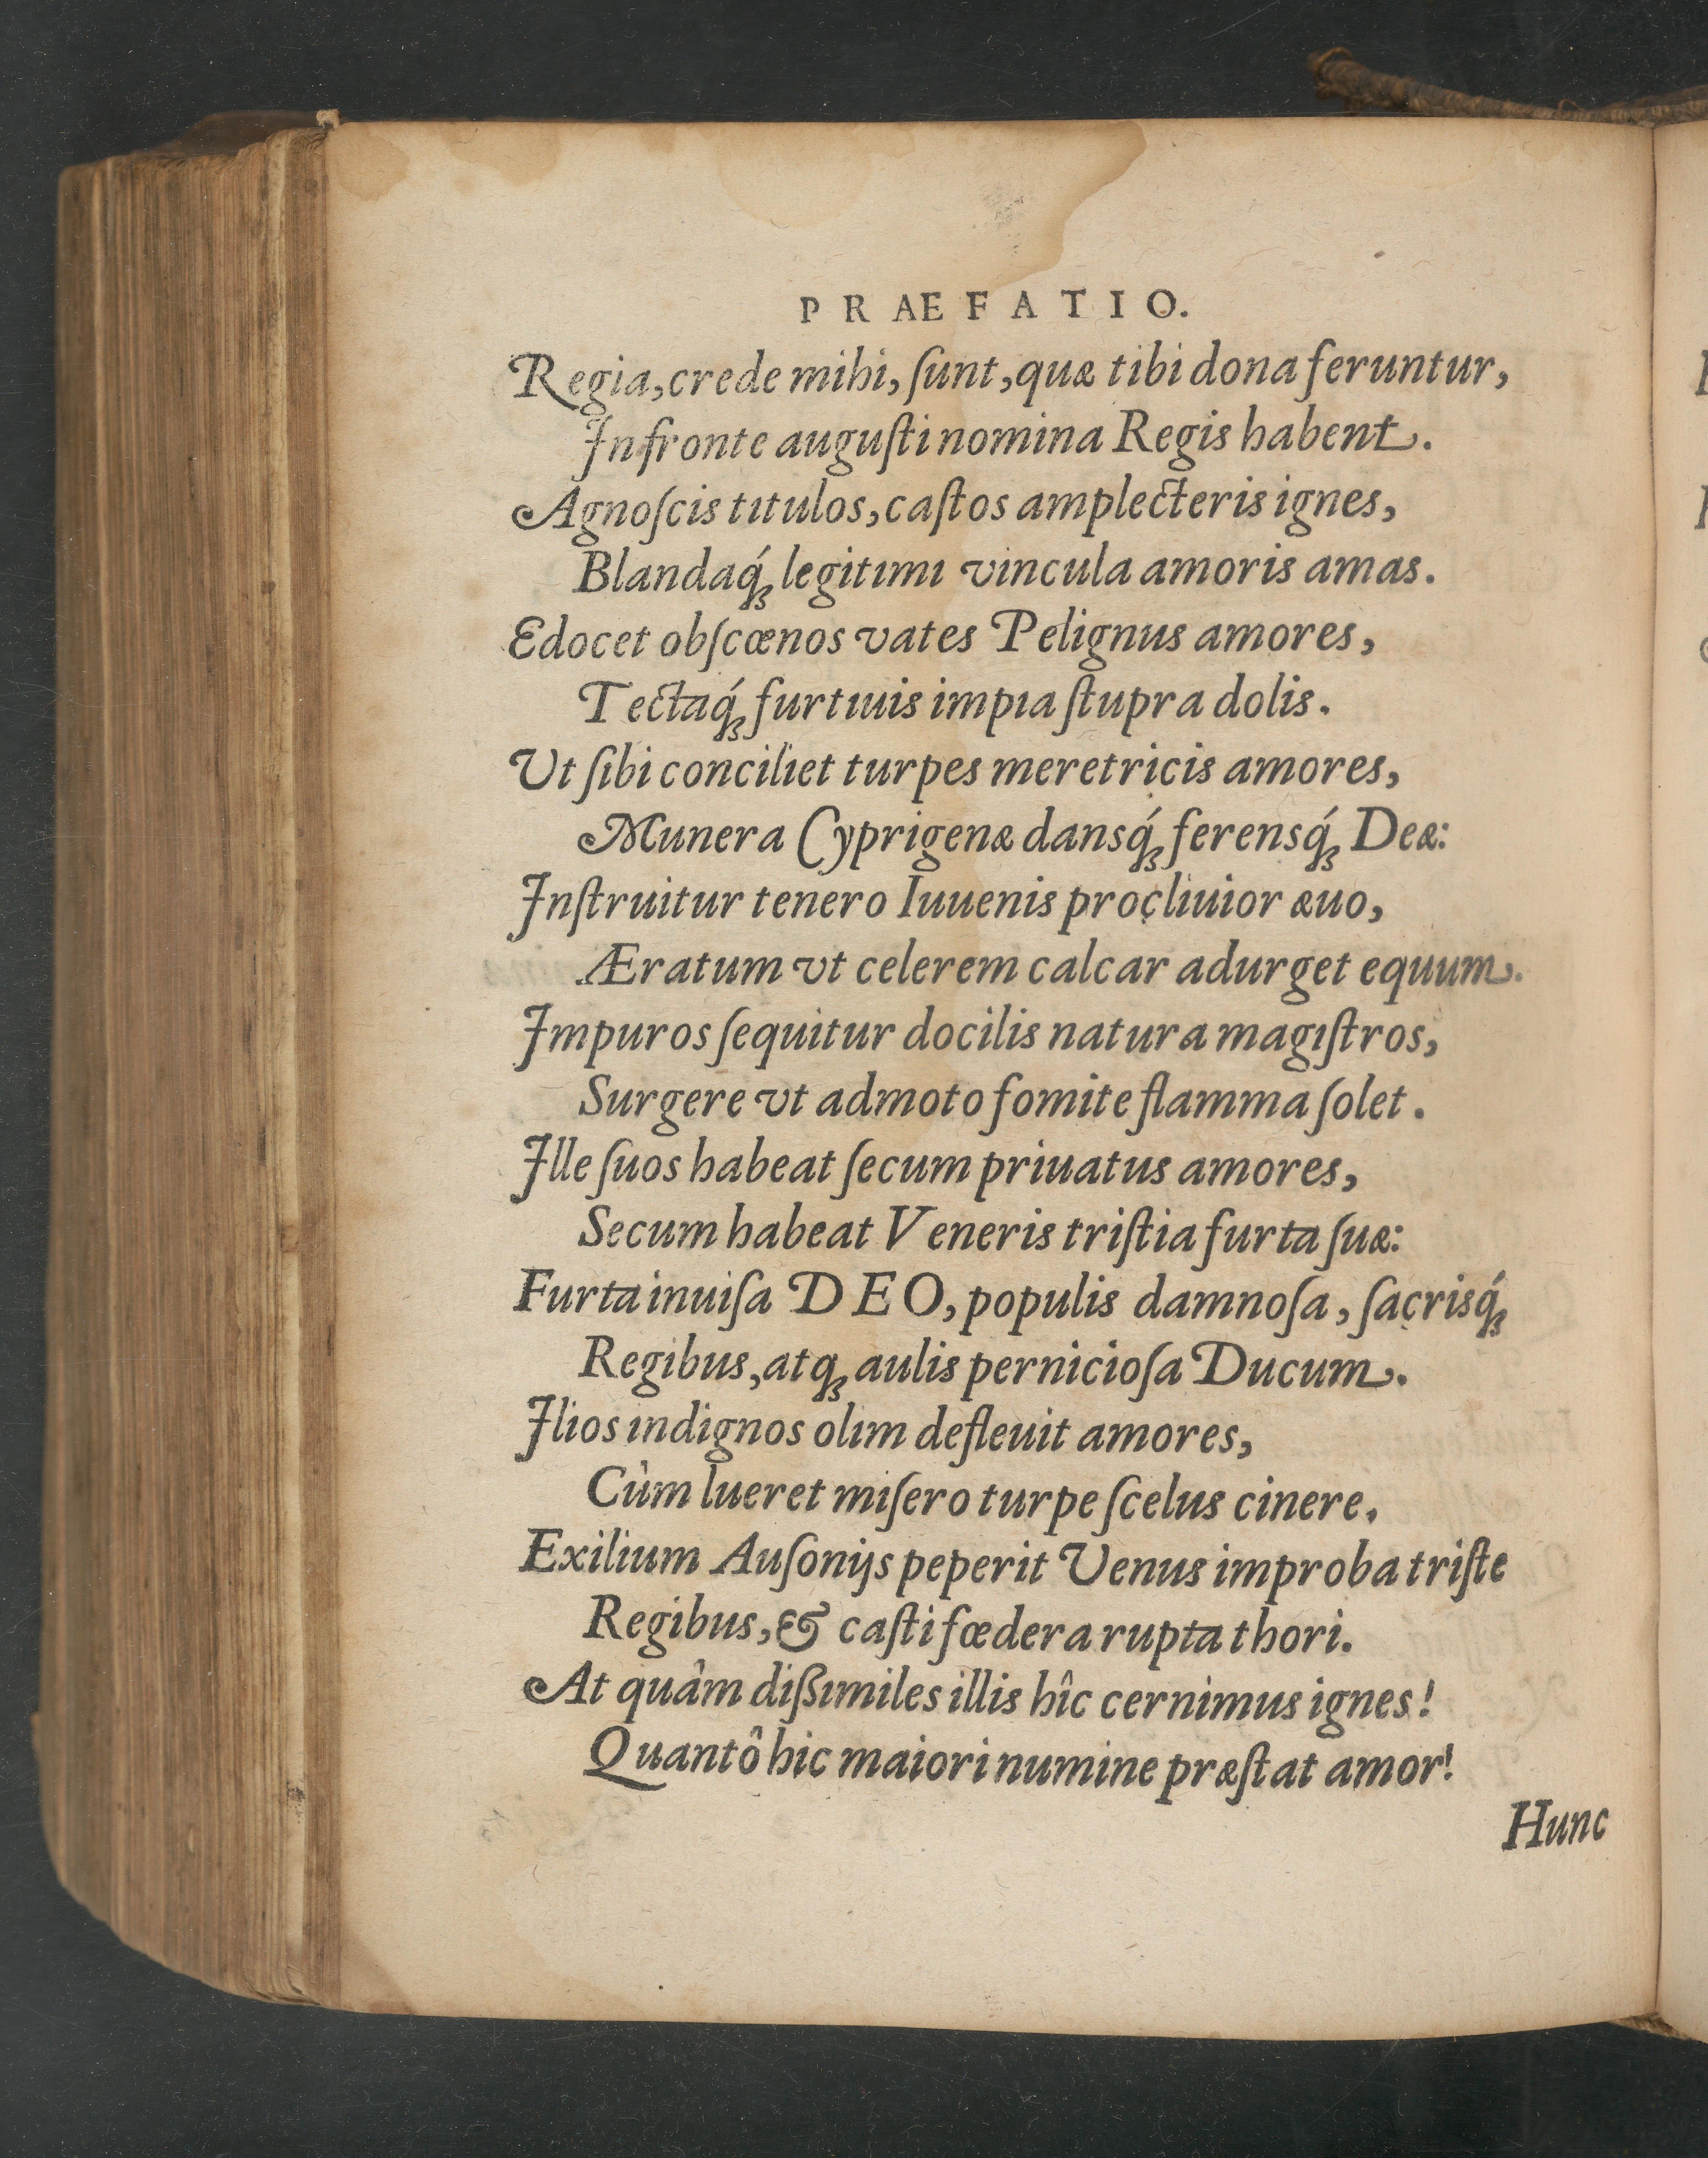 PRAEFATIO.
Regia, crede mihi, ſunt, quæ tibi dona feruntur,
In fronte auguſti nomina Regis habent.
Agnoſcis titulos, caſtos amplecteris ignes,
Blandaq́; legitimi vincula amoris amas.
Edocet obſcœnos vates Pelignus amores,
Tectaq́; furtiuis impia ſtupra dolis.
Vt ſibi conciliet turpes meretricis amores,
Munera Cyprigenæ dansq́; ferensq́; Deæ:
Inſtruitur tenero Iuuenis procliuior æuo,
Æratum vt celerem calcar adurget equum.
Impuros ſequitur docilis natura magiſtros,
Surgere vt admoto fomite flamma ſolet.
Ille ſuos habeat ſecum priuatus amores,
Secum habeat Veneris triſtia furta ſuæ:
Furta inuiſa DEO, populis damnoſa, ſacrisq́;
Regibus, atq; aulis pernicioſa Ducum.
Ilios indignos olim defleuit amores,
Cùm lueret miſero turpe ſcelus cinere.
Exilium Auſonijs peperit Venus improba triſte
Regibus, & caſti fœdera rupta thori.
At quâm diſſimiles illis hîc cernimus ignes!
Quantô hic maiori numine præſtat amor!
Hunc